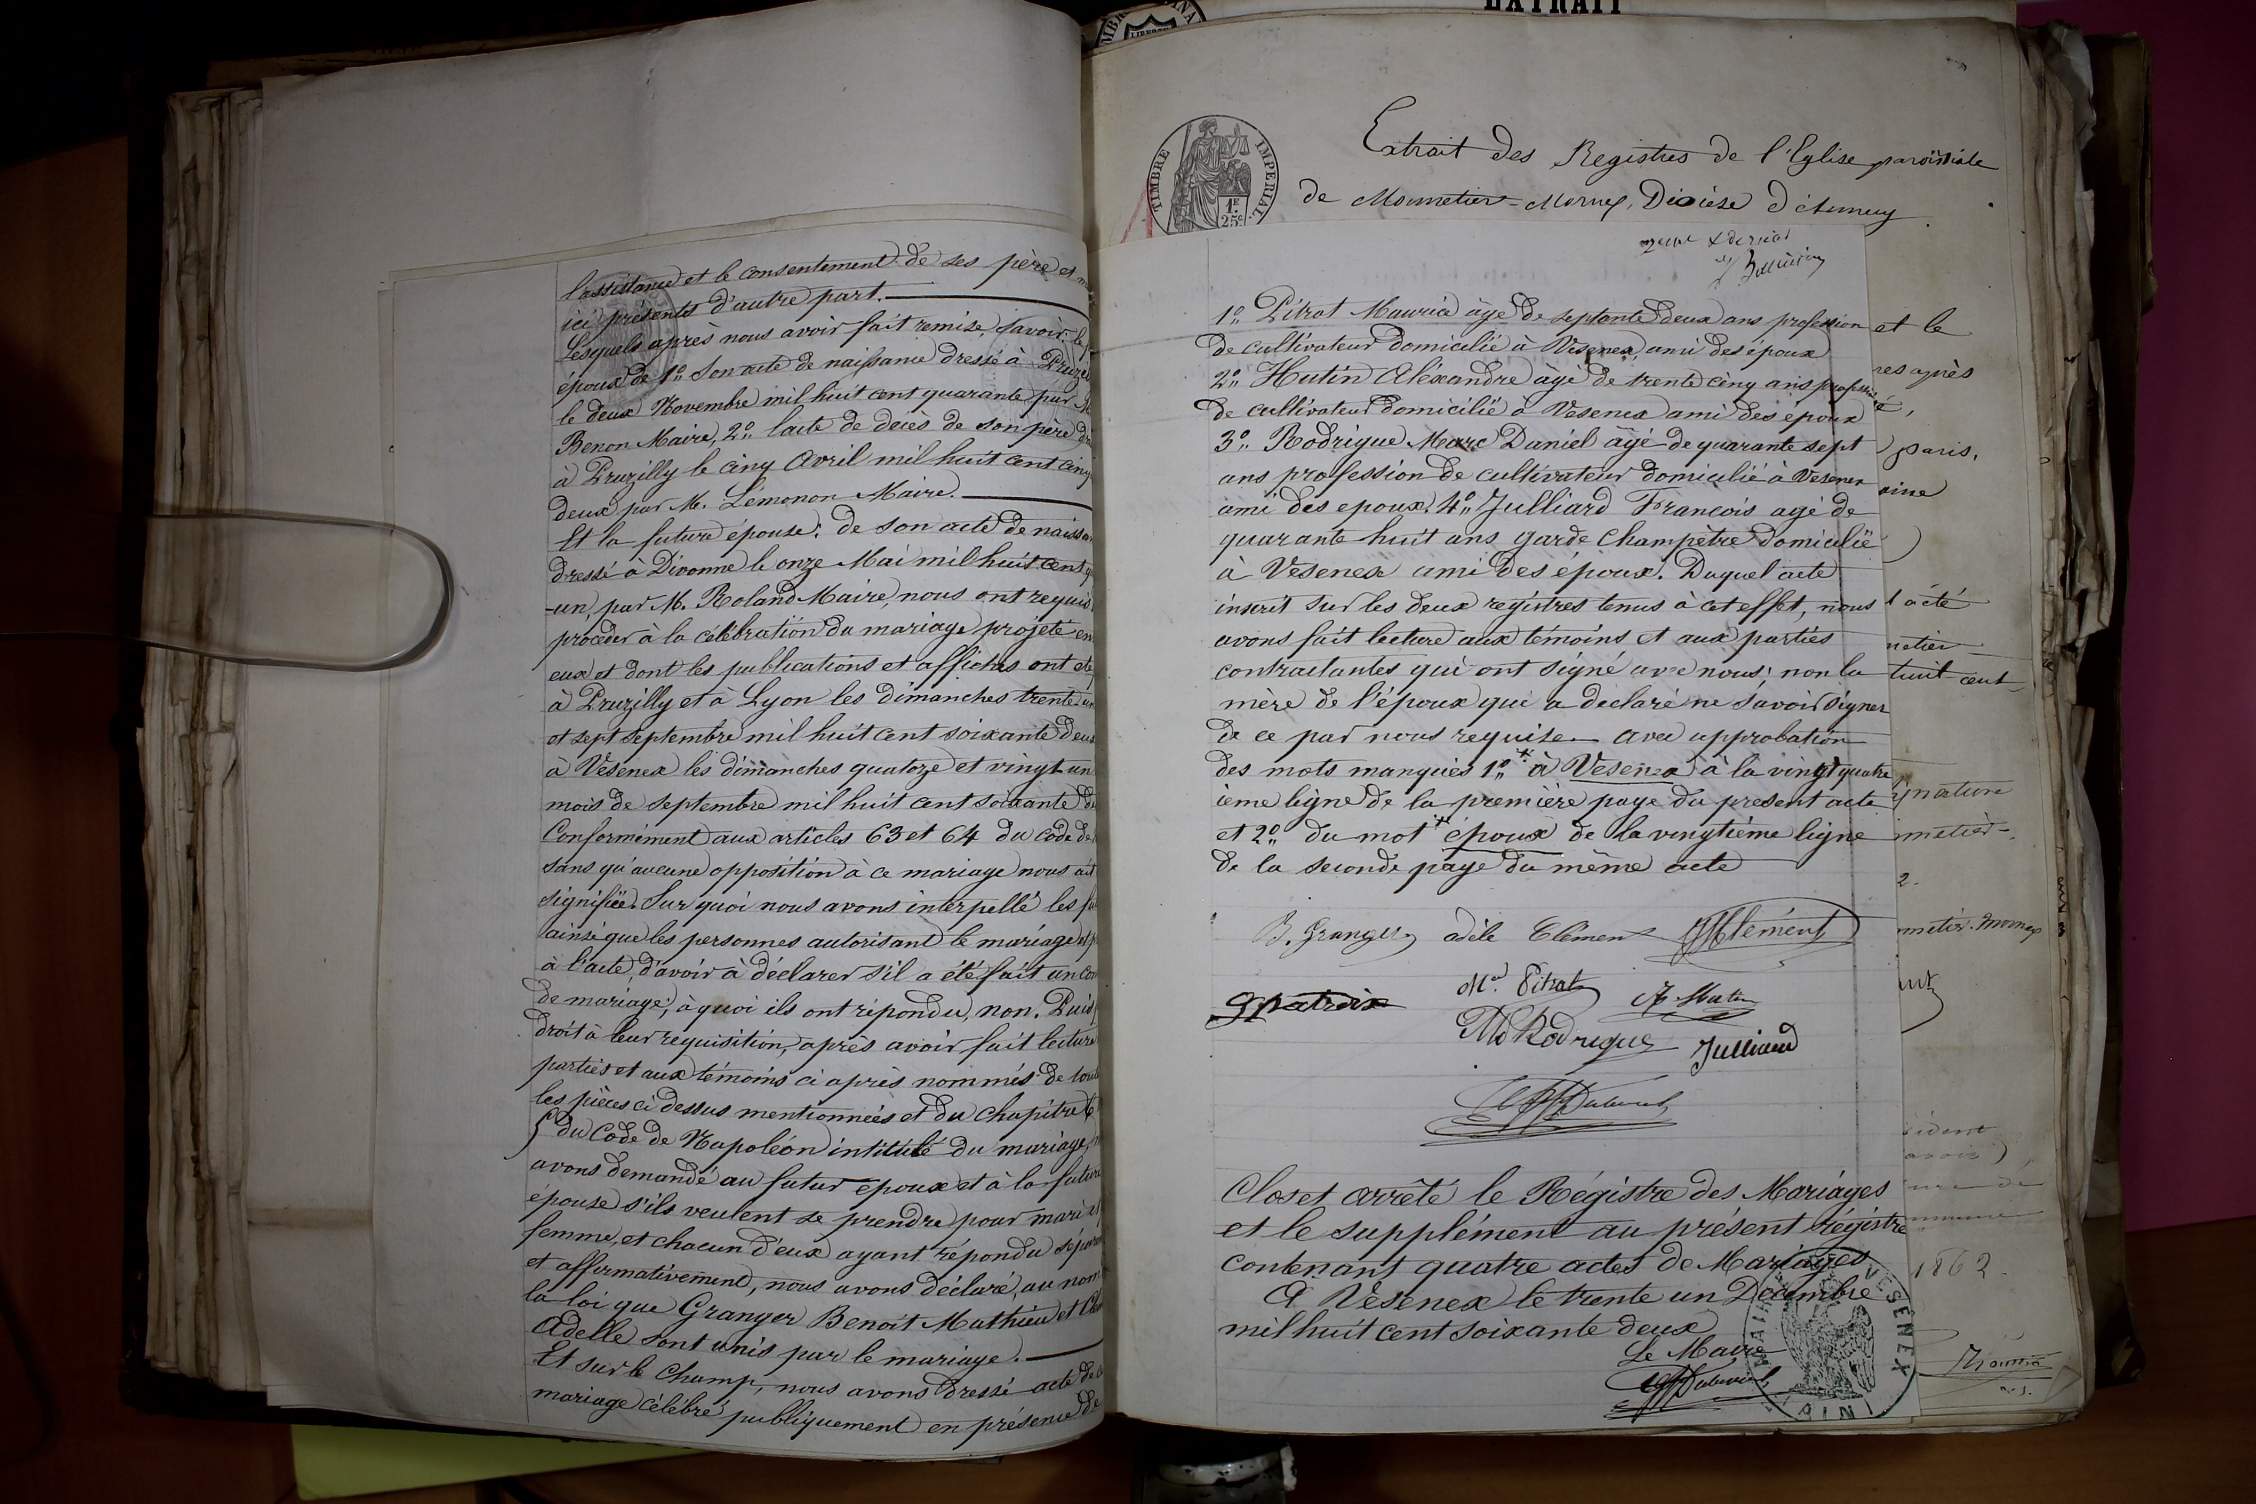 l'assistance et le consentement de ses père et
ici présents d'autre part.
Lesquels après nous avoir fait remise, savoir: le
époux de 1º son acte de naissance dressé à Pruzi
le deux Novembre mil huit cent quarante par
Benon Maire, 2º l'acte de décès de son père
à Pruzilly le cinq Avril mil huit cent cinq
deux par M. Lémonon Maire.
Et la future épouse: de son acte de naissan
dressé à Divonne le onze Mai mil huit cent
-un, par M. Roland Maire, nous ont requis
procéder à la célébration du mariage projeté en
eux et dont les publications et affiches ont été
à Pruzilly et à Lyon les dimanches trente un
et sept septembre mil huit cent soixante deux
à Vésenex les dimanches quatorze et vingt un
mois de septembre mil huit cent soixante
Conformément aux articles 63 et 64 du code de
sans qu'aucune opposition à ce mariage nous ait
signifiée. Sur quoi nous avons interpellé les fu
ainsi que les personnes autorisant le mariage et
à l'acte, d'avoir à déclarer s'il a été fait un con
de mariage; à quoi ils ont répondu, non. Puis
droit à leur requisition, après avoir fait lecture
parties et aux témoins ci après nommés de tout
les pièces ci dessus mentionnées et du chapitre 6
du Code de Napoléon intitulé du mariage,
avons demandé au futur époux et à la future
épouse s'ils veulent se prendre pour mari et
femme, et chacun d'eux ayant répondu sépare
et affirmativement, nous avons déclaré, au nom
la loi que Granger Benoit Mathieu et Clé
Adelle sont unis par le mariage.
Et sur le champ, nous avons dressé acte de
mariage célébré publiquement en présence de
EXTRAIT
TIMBRE IMPERIAL
1F 25c
Extrait des Registres de l'Eglise paroissiale
de Monnetier-Mornex, Diocèse d'Annecy
1º Pitrat Maurice âgé de septante deux ans profession
de cultivateur domicilié à Vesenex, ami des époux
2º Hutin Aléxandre âgé de trente cinq ans profession
de cultivateur domicilié à Vesenex ami des époux
3º Rodrigue Marc Daniel âgé de quarante sept
ans profession de cultivateur domicilié à Vesenex
ami des epoux, 4º Julliard Francois agé de
quarante huit ans garde Champêtre domicilié
à Vésenex ami des époux. Duquel acte
inscrit sur les deux registres tenus à cet effet, nous
avons fait lecture aux témoins et aux parties
contractantes qui ont signé avec nous; non la
mère de l'époux qui a declaré ne savoir signer
de ce par nous requise. avec approbation
des mots manqués 1º à Vesenex à la vingt quatre
ieme ligne de la première page du present acte
et 2º du mot époux de la vingtième ligne
de la seconde page du même acte
B. Granger adèle Clément Clément
Md. Pitrat A Hutin
MD Rodrigue Julliard
Clos et arrêté le Régistre des Mariages
et le supplément au présent régistre
contenant quatre actes de Mariages
A Vésenex le trente un Décembre
mil huit cent soixante deux
Le Maire
MAIRIE VESENEX
AIN
et le
res après
paris,
oine
acté
netier
huit cent
nature
metier-
2.
metier-mornex
1862.